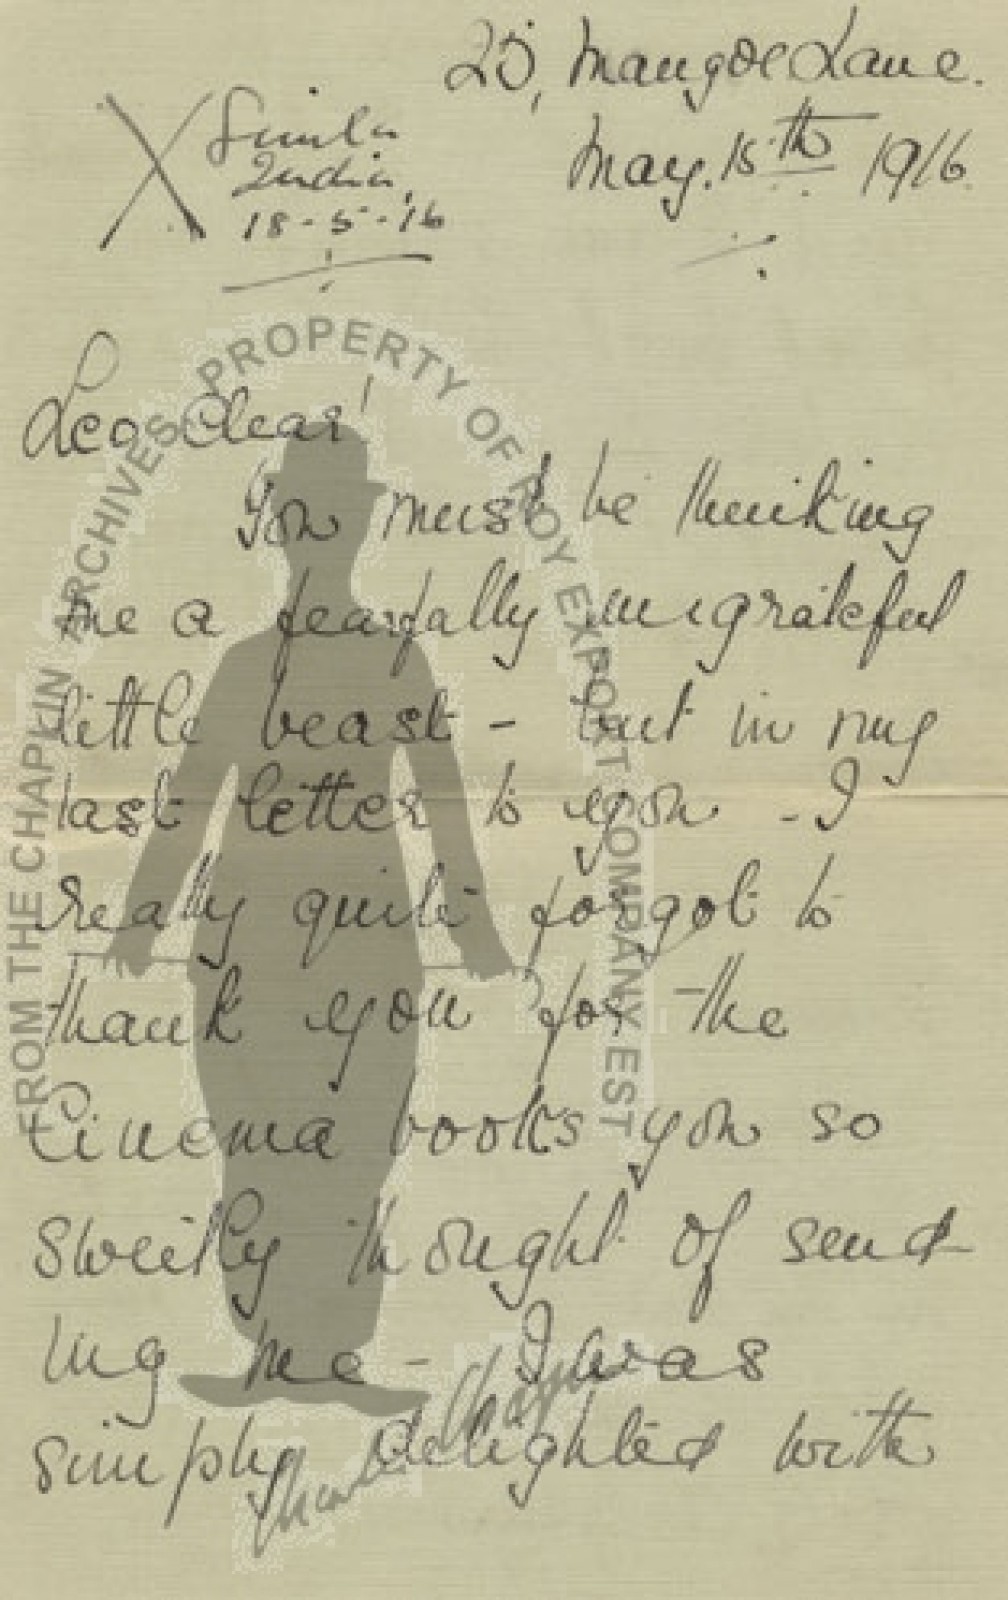 25, Mangoe Lane.
May. 15th 1916.
Simla
India,
18-5-16
Leo dear!
You must be thinking
me a fearfully ungrateful
little beast - but in my
last letter to you - I
really quite forgot to
thank you for the
Cinema books you so
sweetly thought of send
ing me - I was
simply delighted with
FROM THE CHAPLIN ARCHIVES. PROPERTY OF ROY EXPORT COMPANY EST
Charlie Chaplin